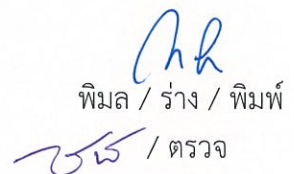 พิมล / ร่าง / พิมพ์
/ ตรวจ